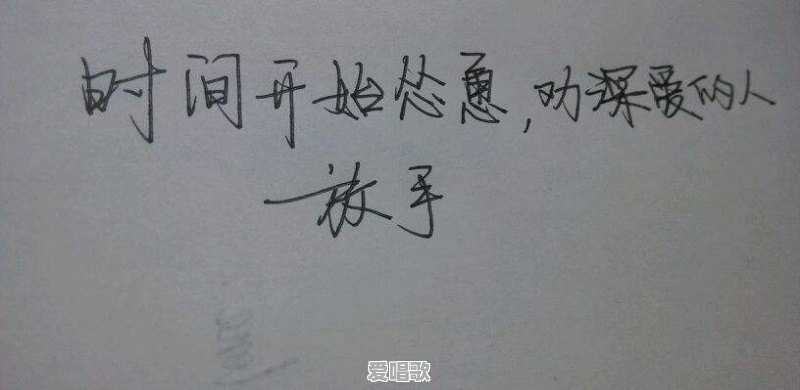 时间开始怂恿,劝深爱的人
放手
爱唱歌